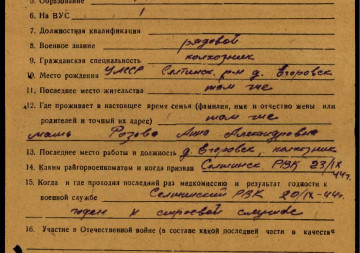 5. Образование
6. На ВУС
7. Должностная квалификация
8. Военное звание рядовой
9. Гражданская специальность колхозник
10. Место рождения УАССР Селтинск. р-н д. Егоровск
11. Последнее место жительства там же
12. Где проживает в настоящее время семья (фамилия, имя и отчество жены или
родителей и точный их адрес) там же
мать Розова Анна Александровна
13. Последнее место работы и должность д. Егоровск, колхозник
14. Каким райгорвоенкоматом и когда призван Селтинск РВК 23/IX
44 г.
15. Когда и где проходил последний раз медкомиссию и результат годности к
военной службе Селтинский РВК 20/IX-44 г.
годен к строевой службе
16. Участие в Отечественной войне (в составе какой последней части и в качестве